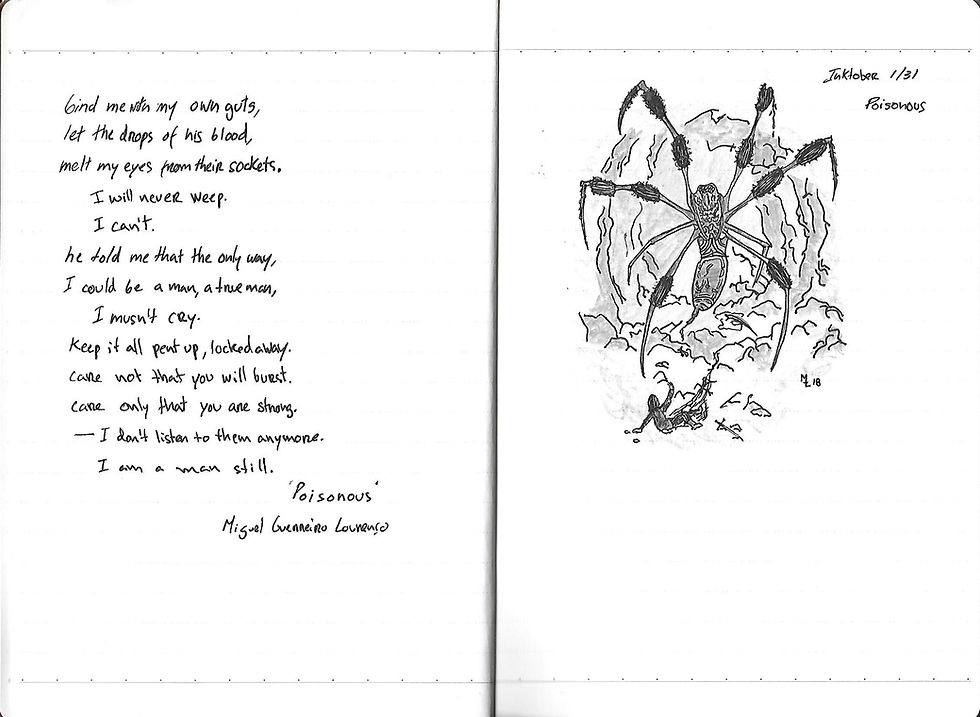 bind me with my own guts,
let the drops of his blood,
melt my eyes from their sockets.
I will never weep.
I can't.
he told me that the only way,
I could be a man, a true man,
I musn't cry.
Keep it all pent up, locked away.
care not that you will burst.
care only that you are strong.
— I don't listen to them anymore.
I am a man still.
'Poisonous'
Miguel Guerreiro Lourenço
Inktober 1/31
Poisonous
ML 18